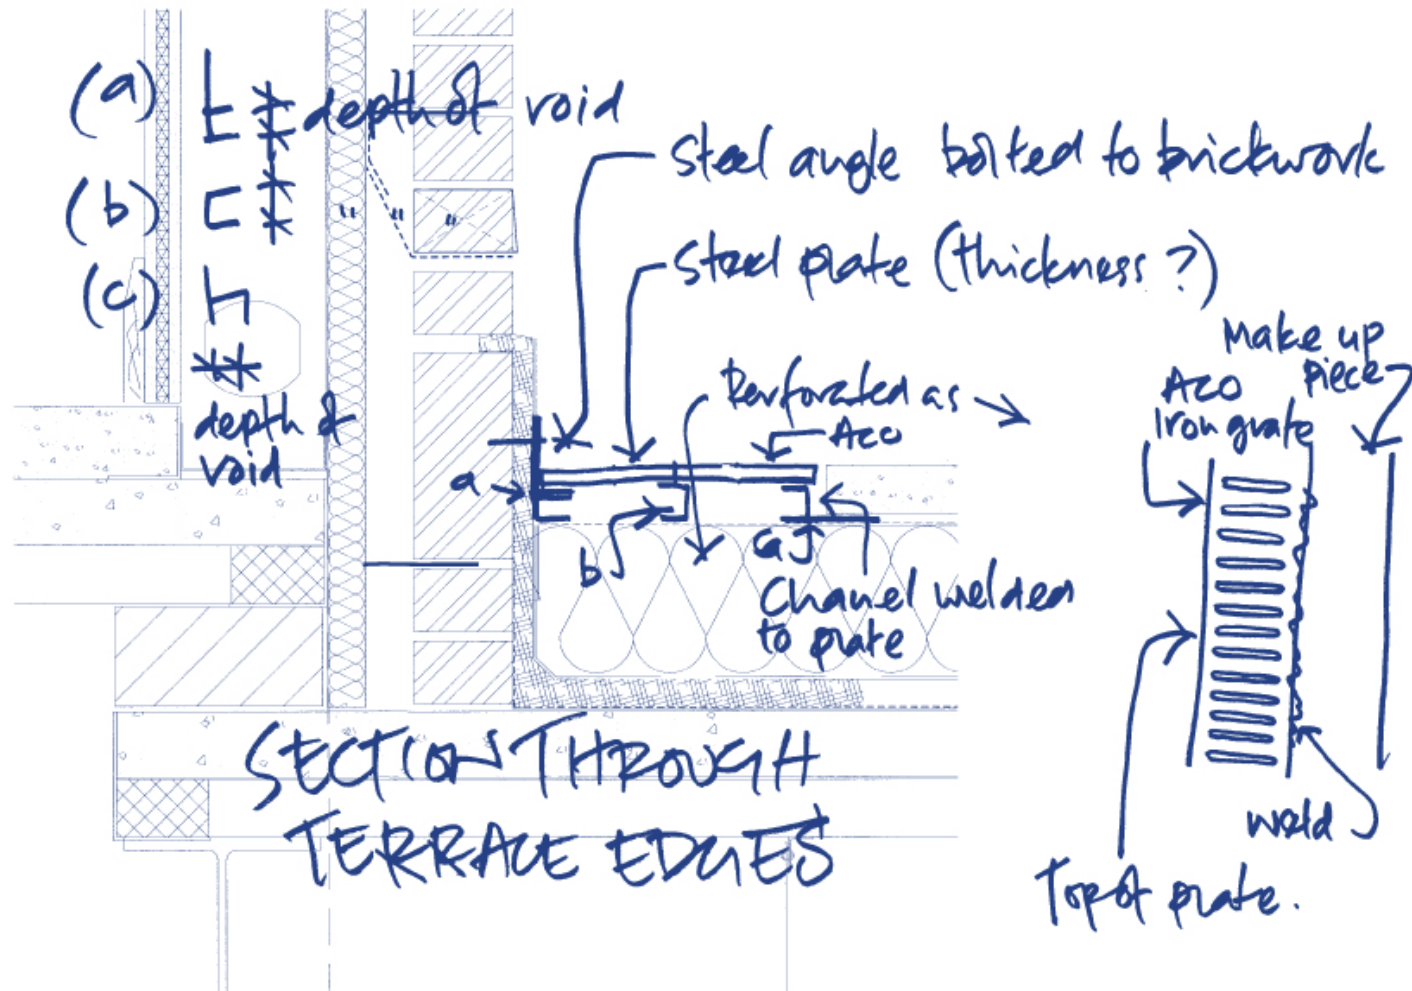 (a)
depth of void
(b)
(c)
depth of
void
Steel angle bolted to brickwork
Steel plate (thickness ?)
Perforated as
Aco
a
b
Chanel welded
to plate
Make up
piece
Aco
Iron grate
weld
Top of plate.
SECTION THROUGH
TERRACE EDGES